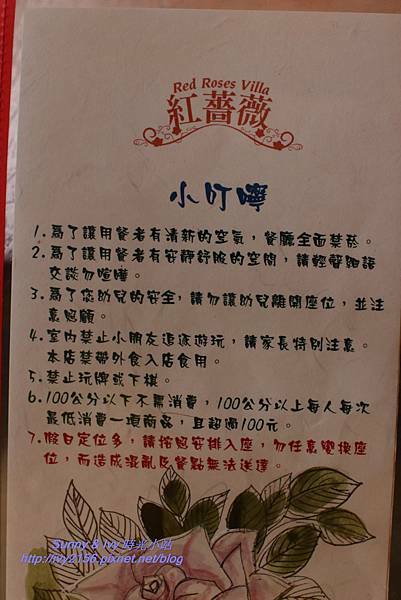 Red Roses Villa
紅薔薇
小叮嚀
1.為了讓用餐者有清新的空氣，餐廳全面禁菸。
2.為了讓用餐者有安靜舒服的空間，請輕聲細語
交談勿喧嘩。
3.為了您幼兒的安全，請勿讓幼兒離開座位，並注
意照顧。
4.室內禁止小朋友追逐遊玩，請家長特別注意。
本店禁帶外食入店食用。
5.禁止玩牌或下棋。
6.100公分以下不需消費，100公分以上每人每次
最低消費一項商品，且超過100元。
7.假日定位多，請按照安排入座，勿任意變換座
位，而造成混亂及餐點無法送達。
Sunny & Ivy 時光小站
http://ivy2156.pixnet.net/blog